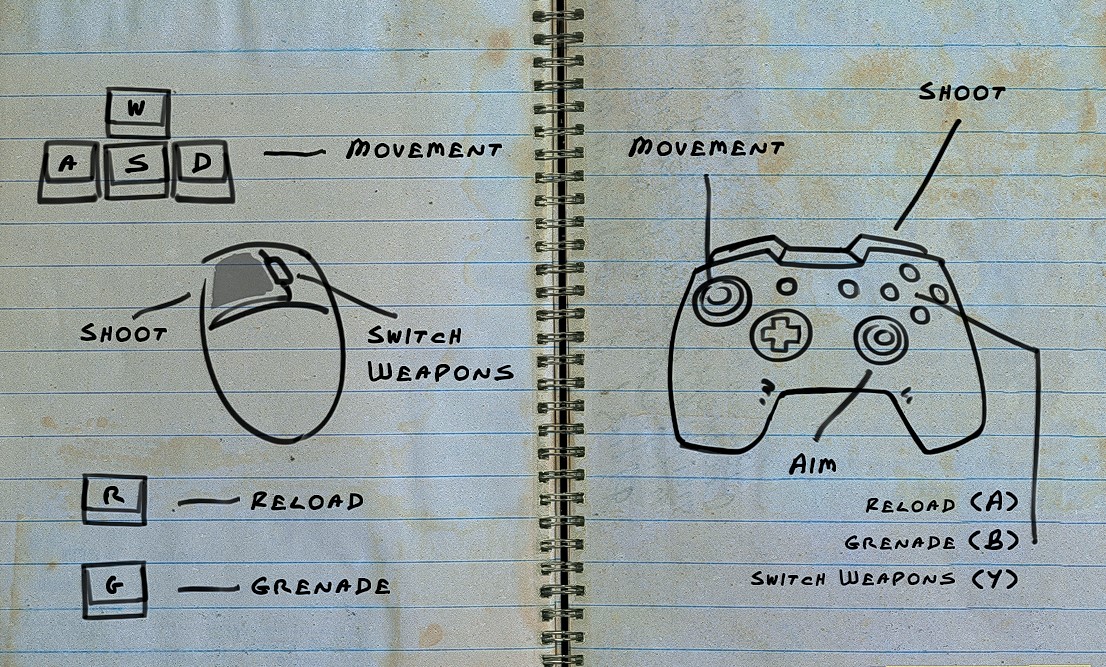 W
A S D
MOVEMENT
SHOOT
SWITCH
WEAPONS
R
RELOAD
G
GRENADE
SHOOT
MOVEMENT
AIM
RELOAD (A)
GRENADE (B)
SWITCH WEAPONS (Y)